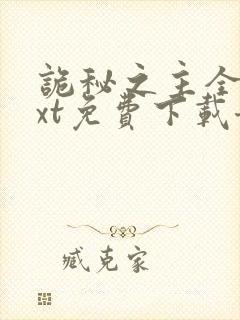 詭秘之主全
xt免費下載
臧克家